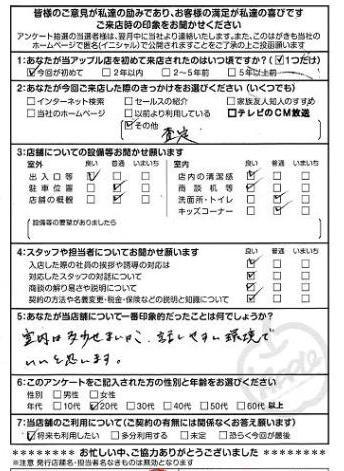 皆様のご意見が私達の励みであり、お客様の満足が私達の喜びです
ご来店時の印象をお聞かせください
アンケート抽選の当選者様は、翌月中に当社より連絡いたします。また、このはがきも当社の
ホームページで匿名(イニシャル)で公開されますことをご了承の上ご投函願います
1:あなたが当アップル店を初めて来店されたのはいつ頃ですか?(☑1つだけ)
☑今回が初めて □2年以内 □2~5年前 □5年以上前
2:あなたが今回ご来店した際のきっかけをお選びください(いくつでも)
□インターネット検索 □セールスの紹介 □家族友人知人のすすめ
□当社のホームページ □以前より利用している □テレビのCM放送
☑その他 査定
3:店舗についての設備等お聞かせ願います
室外 良い 普通 いまいち 室内 良い 普通 いまいち
出入口等 ☑ □ □ 店内の清潔感 ☑ □ □
駐車位置 □ ☑ □ 商談机等 ☑ □ □
店舗の概観 □ ☑ □ 洗面所・トイレ □ ☑ □
キッズコーナー □ ☑ □
(設備等の要望がありましたら
4:スタッフや担当者についてお聞かせ願います 良い 普通 いまいち
入店した際の社員の挨拶や誘導の対応は ☑ □ □
対応したスタッフの対話について ☑ □ □
商談の解り易さや説明について ☑ □ □
契約の方法や名義変更・税金・保険などの説明と知識について ☑ □ □
5:あなたが当店舗について一番印象的だったことは何でしょうか?
室内は多少せまいが、話しやすい環境で
いいと思います。
6:このアンケートをご記入された方の性別と年齢をお選びください
性別 □男性 □女性
年代 □10代 ☑20代 □30代 □40代 □50代 □60代 以上
7:当店舗のご利用について(ご契約の有無には関係なくお答え願います)
☑将来も利用したい □多分利用する □未定 □恐らく今回が最後
******** お忙しい中、ご協力ありがとうございました ********
※注意 発行店舗名・担当者名なきものは無効となります